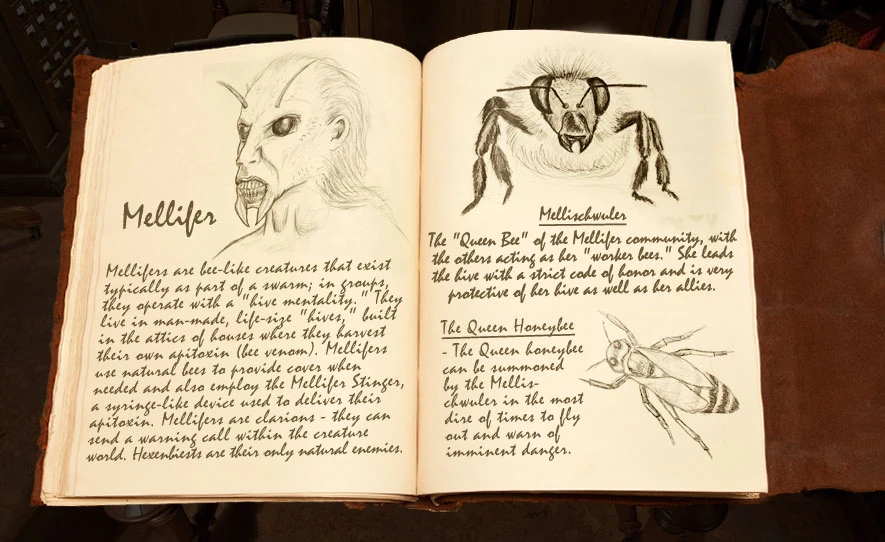 Mellifer
Mellifers are bee-like creatures that exist
typically as part of a swarm; in groups,
they operate with a "hive mentality." They
live in man-made, life-size "hives," built
in the attics of houses where they harvest
their own apitoxin (bee venom). Mellifers
use natural bees to provide cover when
needed and also employ the Mellifer Stinger,
a syringe-like device used to deliver their
apitoxin. Mellifers are clarions - they can
send a warning call within the creature
world. Hexenbiests are their only natural enemies.
Mellischwuler
The "Queen Bee" of the Mellifer community, with
the others acting as her "worker bees." She leads
the hive with a strict code of honor and is very
protective of her hive as well as her allies.
The Queen Honeybee
- The Queen honeybee
can be summoned
by the Mellis-
chwuler in the most
dire of times to fly
out and warn of
imminent danger.